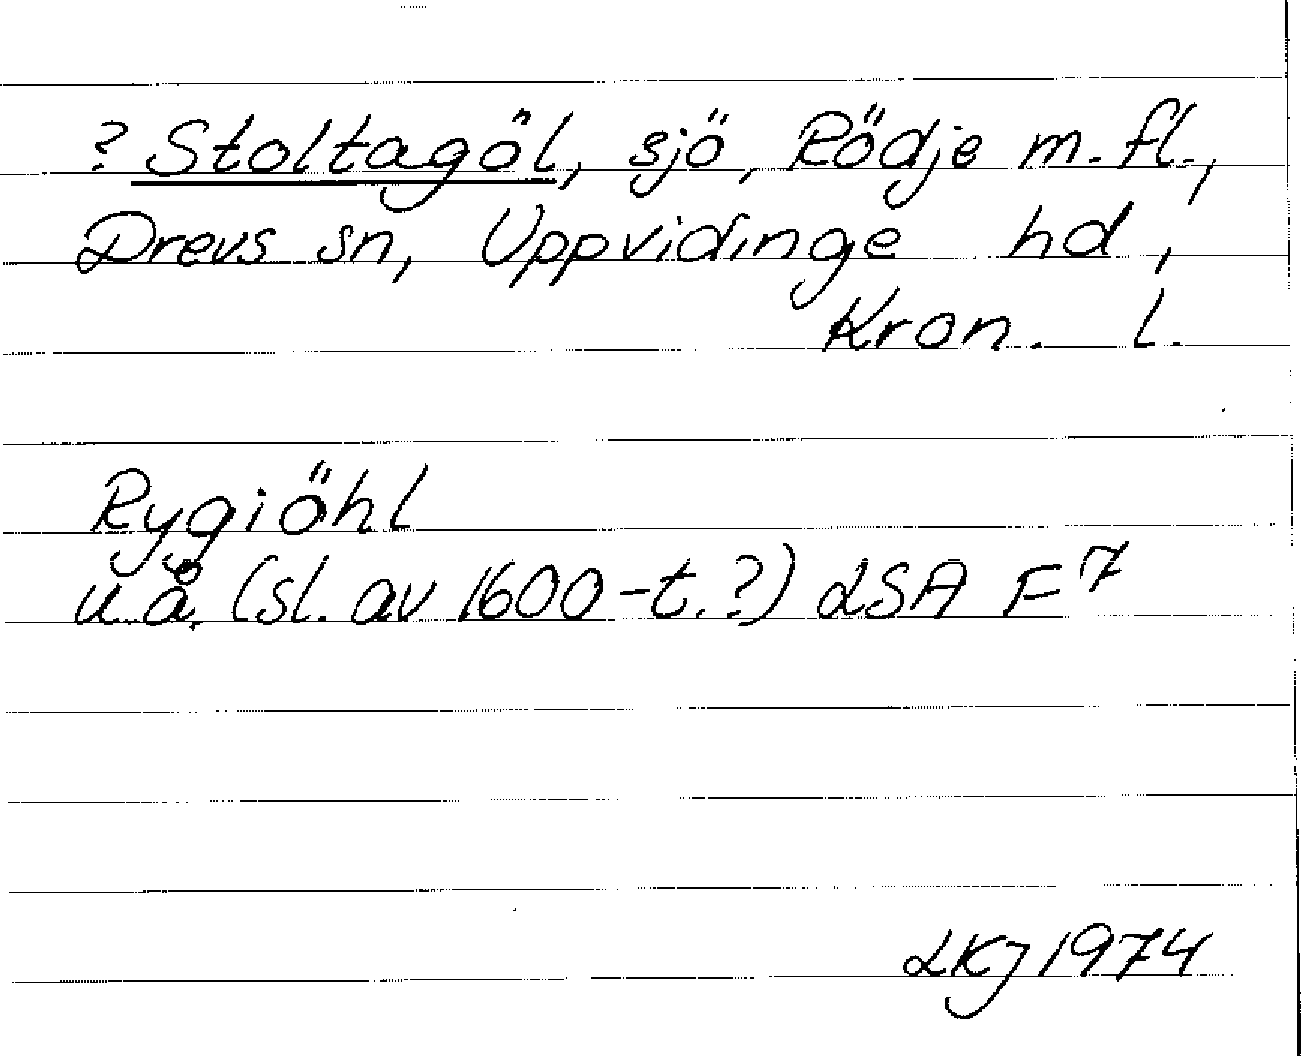 ? Stoltagöl, sjö, Rödje m. fl.,
Drevs sn, Uppvidinge hd,
Kron. l.
Rygiöhl
u.å. (sl. av 1600-t.?) LSA F7
LKJ 1974